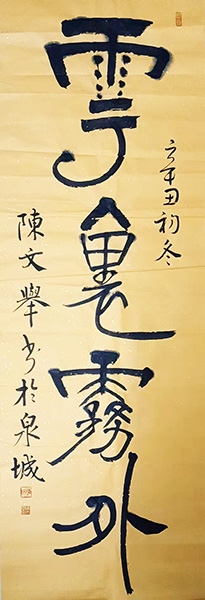 雲裏霧外
辛丑初冬
陳文舉书於泉城